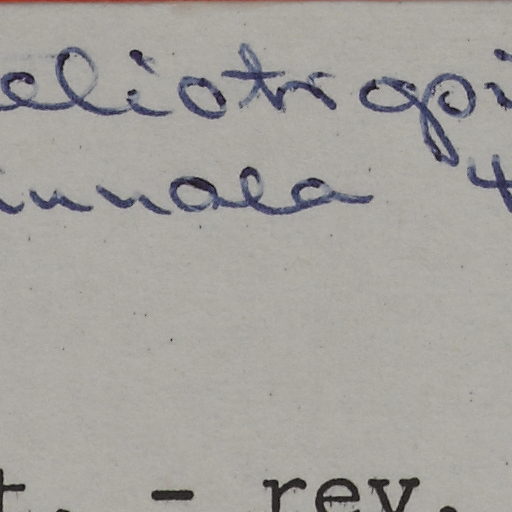 eliotropi
innaea 4
t. - rev.